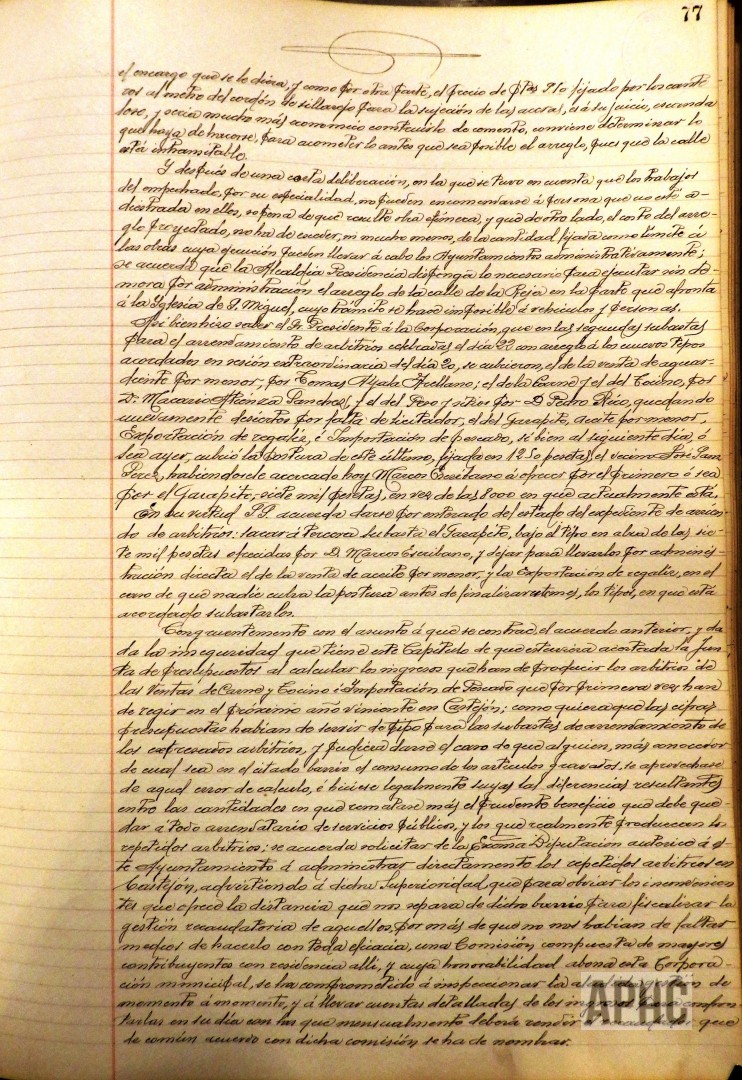 77
el encargo que se le diera, y como por otra parte, el precio de ptas 9'10 fijado por los cante
ros al metro del cordón de sillarejo para la sujeción de las aceras, es á su juicio,
y sería mucho más económico construirlo de cemento, conviene determinar lo
que haya de hacerse, para acometerlo antes que sea posible el arreglo, pues que la calle
está intransitable.
Y después de una deliberación, en la que se tuvo en cuenta que los trabajos
del empedrado, por su especialidad, no pueden encomendarse á persona que no esté a-
diestrada en ellos, so pena de que resulte obra efímera, y que de otro lado, el costo del arre-
glo proyectado, no ha de exceder, ni mucho menos, de la cantidad fijada como límite á
las obras cuya ejecución pueden llevar á cabo los Ayuntamientos administrativamente;
se acuerda que la Alcaldía Presidencia disponga lo necesario para ejecutar sin de-
mora por administración el arreglo de la calle de la Reja en la parte que afronta
á la Iglesia de S. Miguel, cuyo tránsito se hace imposible á vehículos y personas.
Así bien hizo saber el Sr. Presidente á la Corporación, que en las segundas subastas
para el arrendamiento de arbitrios celebradas el día 22 con arreglo á los nuevos tipos
acordados en sesión extraordinaria del día 20, se cubrieron, el de la venta de aguar-
diente por menor, por Tomás Ayala Arellano; el de la Carne y el del Tocino, por
D. Macario Atienza Sanchez, y el del Peso y sitios por D. Pedro Rico, quedando
nuevamente desiertos por falta de licitador, el del Garapito, aceite por menor,
Exportación de regaliz, é Importación de pescado, si bien al siguiente día, ó
sea ayer, cubrió la postura de este último, fijada en 1250 pesetas, el vecino José
Perez, habiéndosele acercado hoy Marcos Escribano á ofrecer por el primero ó sea
por el Garapito, siete mil pesetas, en vez de las 8000 en que actualmente está.
En su virtud S.S. acuerda darse por enterado del estado del expediente de arrien-
do de arbitrios: sacar á tercera subasta el Garapito, bajo el tipo en alza de las sie-
te mil pesetas ofrecidas por D. Marcos Escribano, y dejar para llevarlos por adminis-
tración directa el de la venta de aceite por menor, y la Exportación de regaliz, en el
caso de que nadie cubra la postura antes de finalizar el mes, los tipos, en que está
acordado subastarlos.
Congruentemente con el asunto á que se contrae el acuerdo anterior, y da-
da la inseguridad que tiene este Capítulo de que estuviera acertada la Jun-
ta de Presupuestos al calcular los ingresos que han de producir los arbitrios de
las Ventas de Carne y Tocino é Importación de Pescado que por primera vez han
de regir en el próximo año viniente en Castejón; como quiera que las cifras
presupuestas habían de servir de tipo para las subastas de arrendamiento de
los expresados arbitrios, y pudiera darse el caso de que alguien, más conocedor
de cual sea en el citado barrio el consumo de los artículos gravados, se aprovechase
de aquel error de calculo, é hiciese legalmente suyas las diferencias resultantes
entre las cantidades en que rematase más el prudente beneficio que debe que-
dar á todo arrendatario de servicios públicos, y los que realmente produzcan los
repetidos arbitrios; se acuerda solicitar de la Excma Diputación autorice á es-
te Ayuntamiento á administrar directamente los repetidos arbitrios en
Castejón, advirtiendo á dicha Superioridad, que para obviar los inconvenien-
tes que ofrece la distancia que nos separa de dicho barrio para fiscalizar la
gestión recaudatoria de aquellos, por más de que no nos habían de faltar
medios de hacerlo con toda eficacia, una Comisión compuesta de mayores
contribuyentes con residencia allí, y cuya honorabilidad abona esta Corpora-
ción municipal, se ha comprometido á inspeccionar la de
momento á momento, y á llevar cuentas detalladas de los para confron-
tarlas en su día con las que mensualmente deberá rendir que
de común acuerdo con dicha comisión se ha de nombrar.
APHC